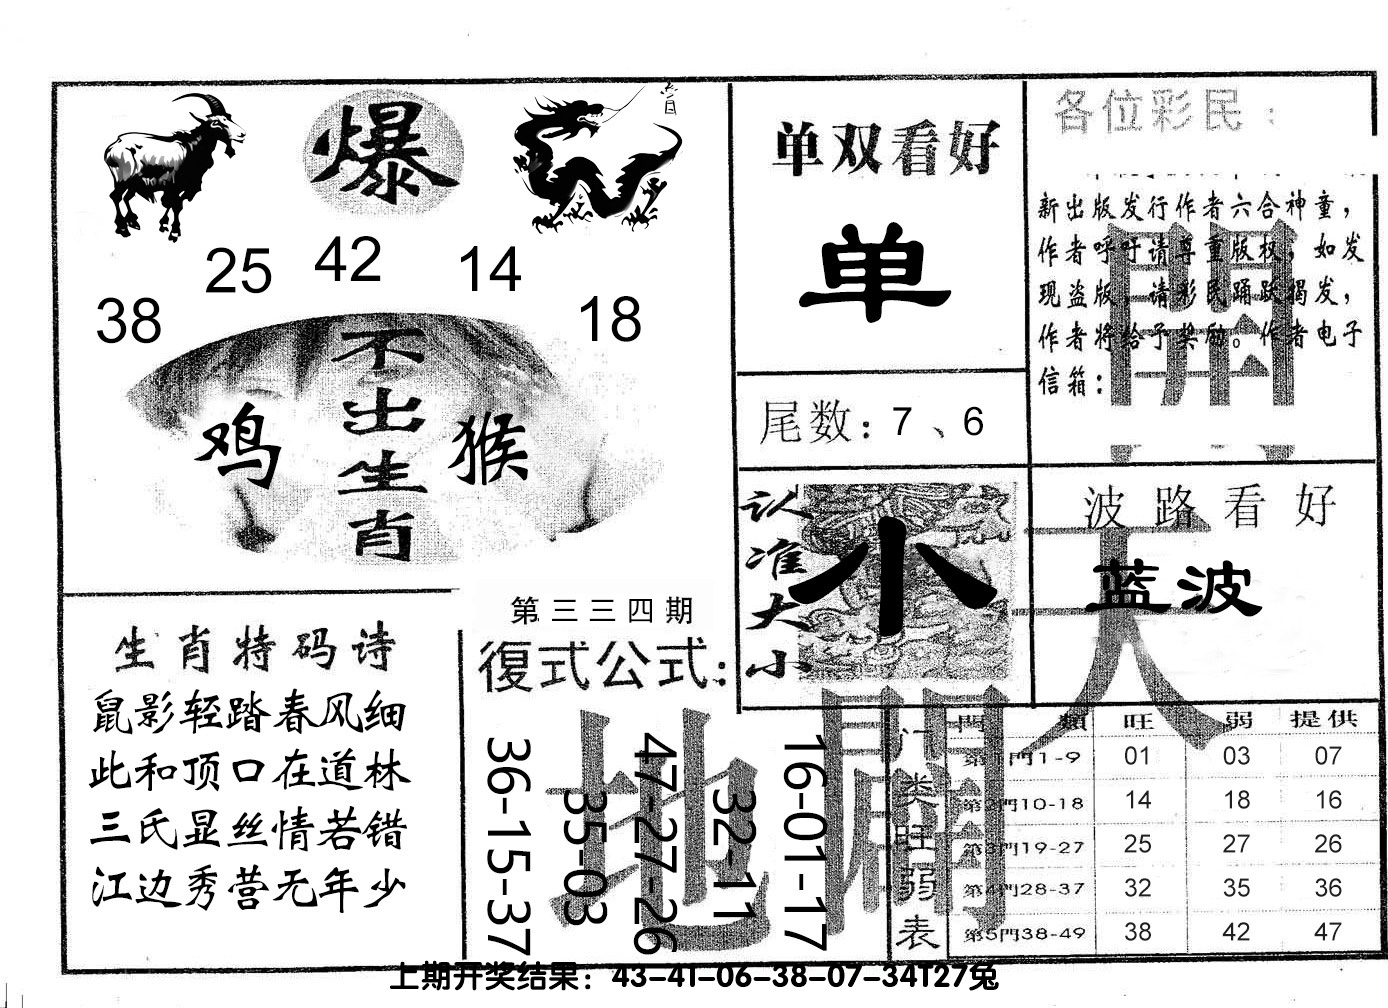 爆
25 42 14
38 18
不出生肖
鸡 猴
单双看好
单
尾数：7、6
各位彩民：
新出版发行作者六合神童，
作者呼吁请尊重版权，如发
现盗版，请彩民踊跃揭发，
作者将给予奖励。作者电子
信箱：
認准大小
小
波路看好
蓝波
天
開
地
開
生肖特码诗
鼠影轻踏春风细
此和顶口在道林
三氏显丝情若错
江边秀营无年少
第三三四期
復式公式：
36-15-37
35-03
47-27-26
32-11
16-01-17
门类旺弱表
門類 旺 弱 提供
第1門1-9 01 03 07
第2門10-18 14 18 16
第3門19-27 25 27 26
第4門28-37 32 35 36
第5門38-49 38 42 47
上期开奖结果：43-41-06-38-07-34T27兔